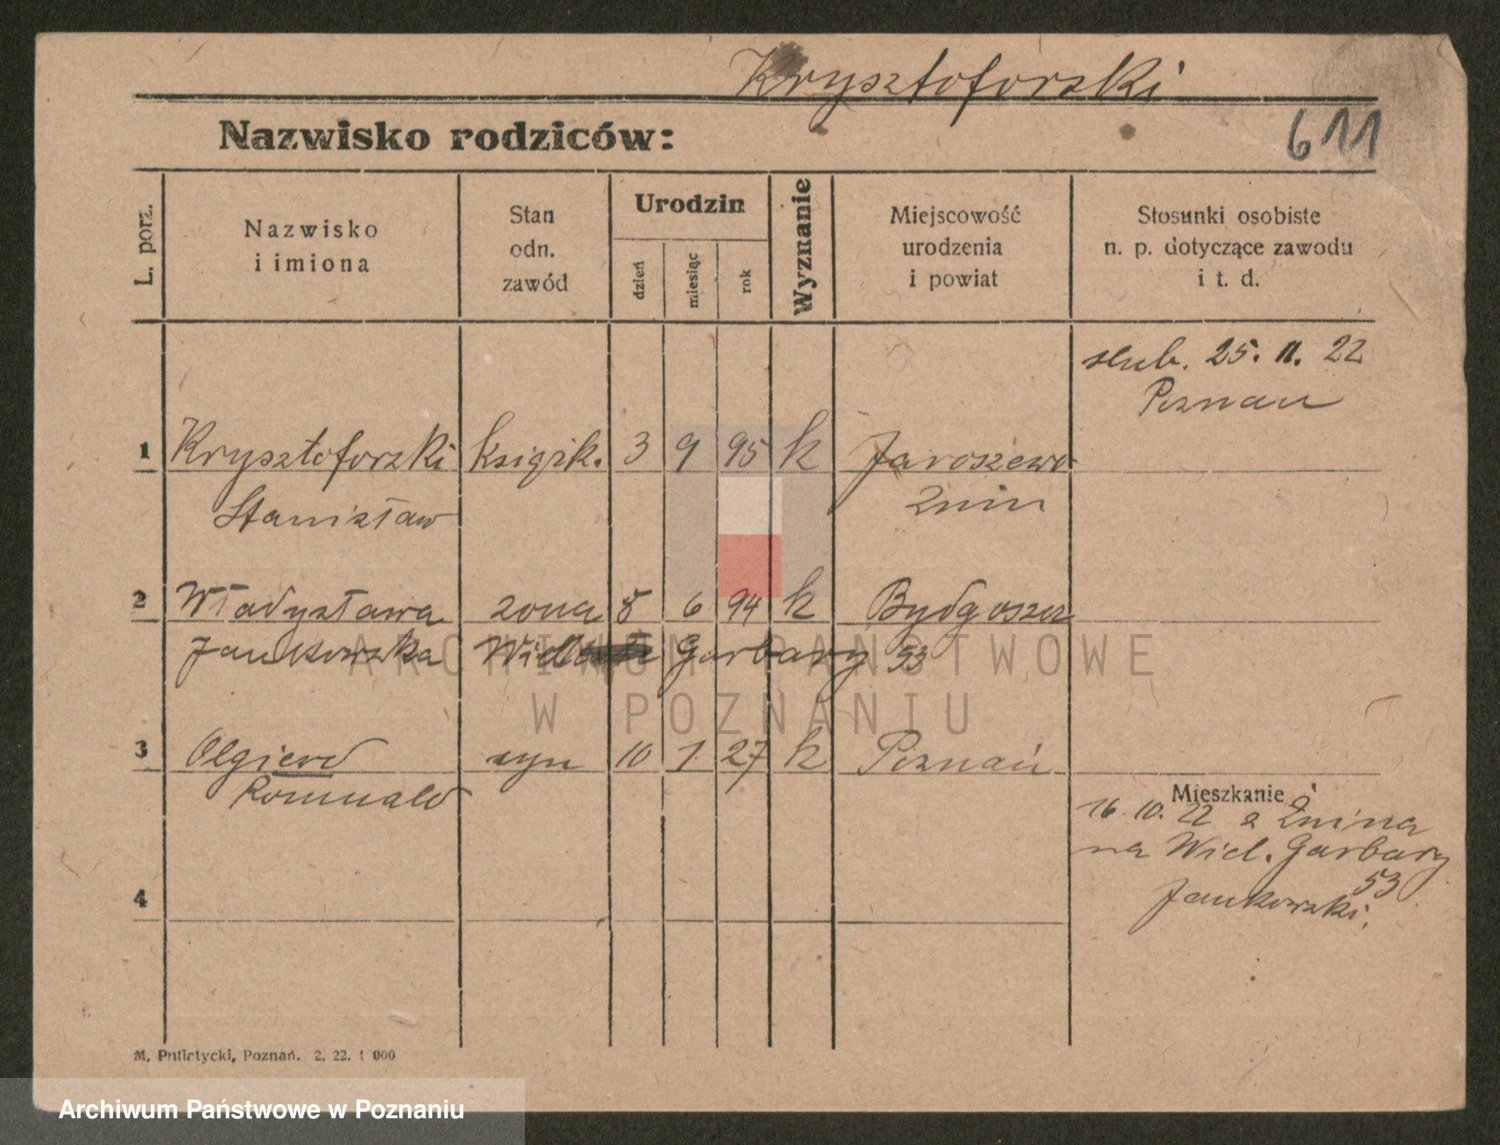 Krysztoforski
Nazwisko rodziców:
611
L. porz.
Nazwisko
i imiona
Stan
odn.
zawód
Urodzin
dzień
miesiąc
rok
Wyznanie
Miejscowość
urodzenia
i powiat
Stosunki osobiste
n. p. dotyczące zawodu
i t. d.
slub. 25. 11. 22
Poznań
1 Krysztoforski Książk. 3 9 95 k Jaroszewo
Stanisław Żnin
2 Władysława żona 8 6 94 k Bydgoszcz
Jankowska Garbary 53
3 Olgierd syn 10 1 27 k Poznań
Romuald
Mieszkanie
16. 10. 22 z Żnina
na Wiel. Garbary
53
Jankowski.
4
M. Putiatycki, Poznań. 2. 22. 1 000
ARCHIWUM PAŃSTWOWE
W POZNANIU
Archiwum Państwowe w Poznaniu